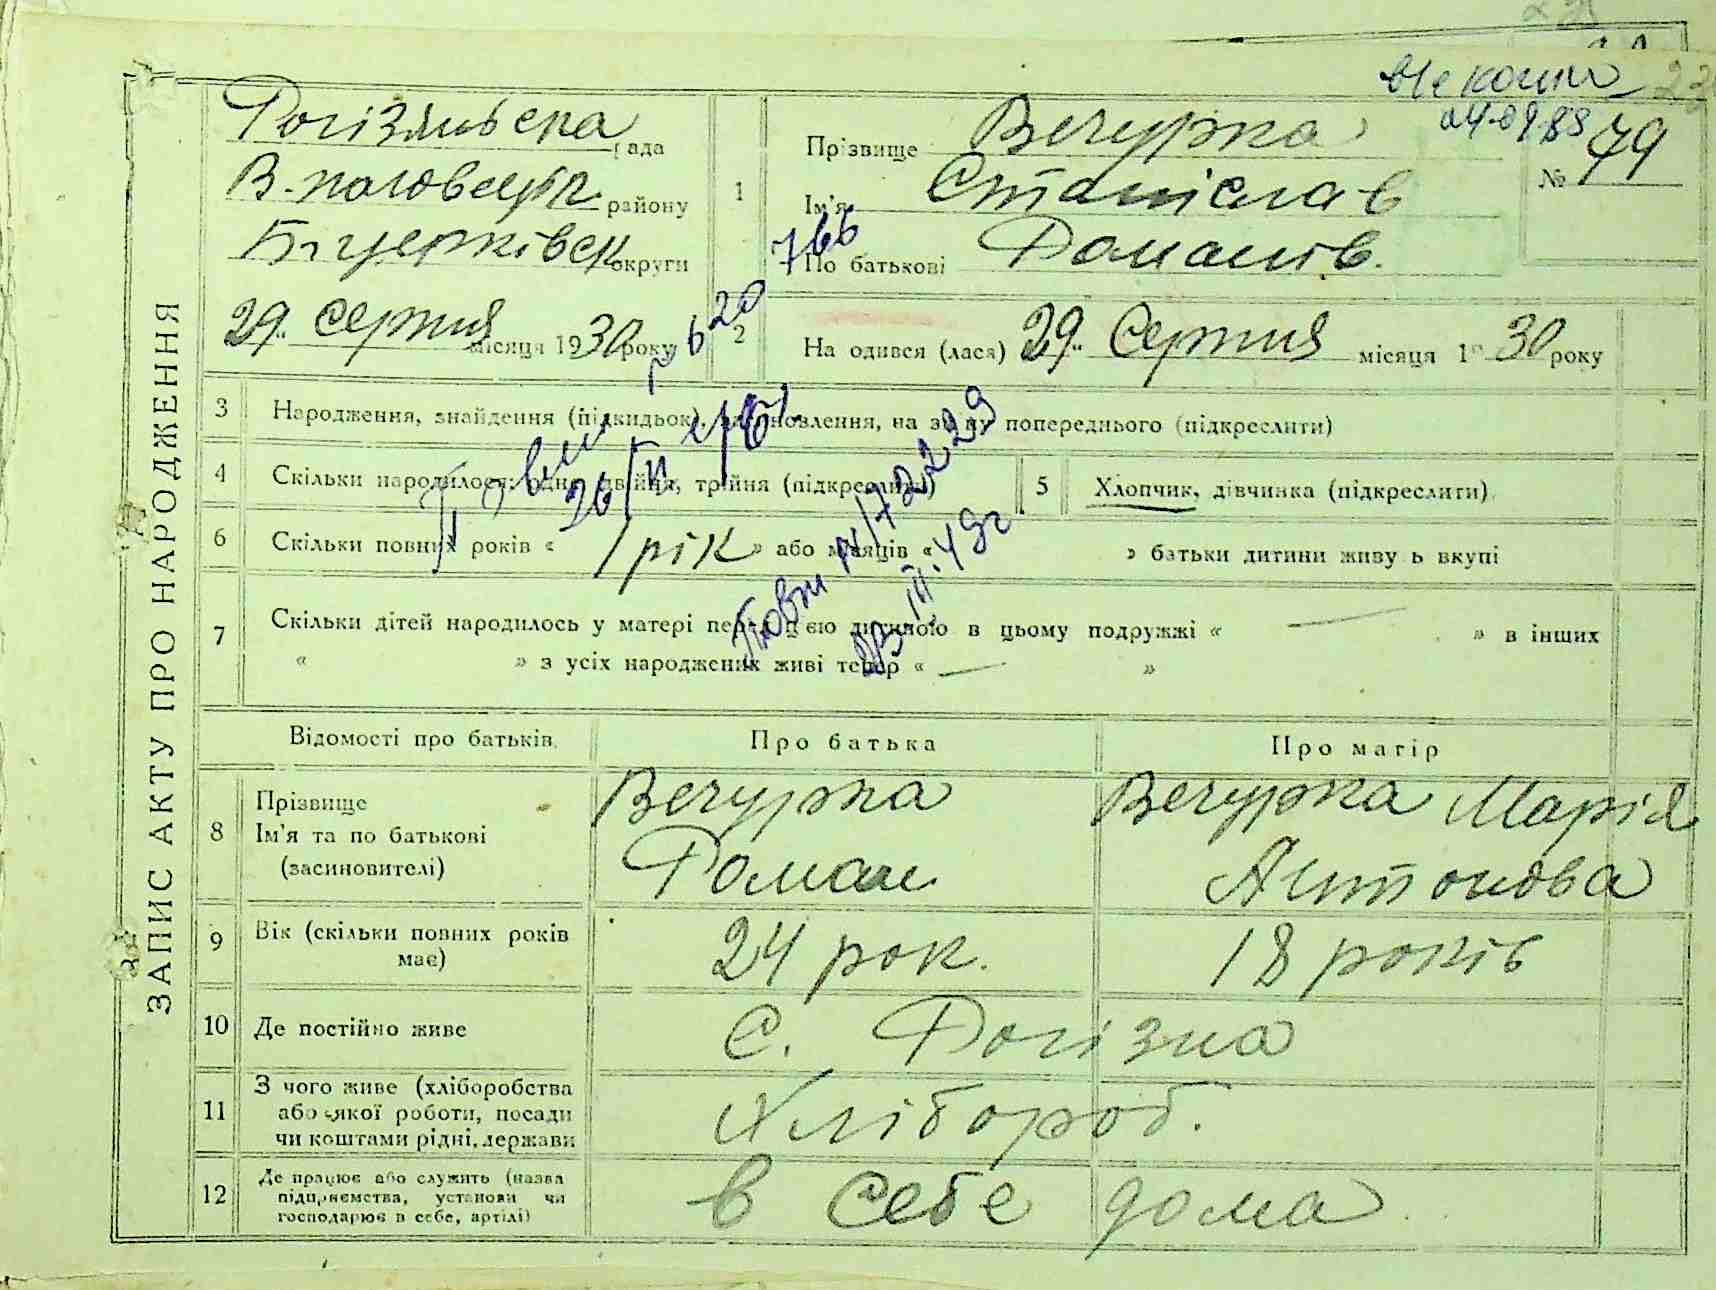 ЗАПИС АКТУ ПРО НАРОДЖЕННЯ
Рогізянська рада
В-половецьк району
Б-церківськ округи
29 серпня місяця 1930 року
1
Прізвище Вечурка
Ім'я Станіслав
По батькові Романів.
№ 79
24-09.88
766
620
2
На одився (лася) 29 Серпня місяця 1 30 року
3 Народження, знайдення (підкидьок), новлення, на з попереднього (підкреслити)
4 Скільки народилося: одно двійня, трійня (підкреслити)
5 Хлопчик, дівчинка (підкреслити)
6 Скільки повних років « 1 рік » або місяців « » батьки дитини живу ь вкупі
7 Скільки дітей народилось у матері перед цією дитиною в цьому подружжі « — » в інших
« » з усіх народжених живі тепер « — »
Відомості про батьків. Про батька Про матір
8 Прізвище
Ім'я та по батькові
(засиновителі)
Вечурка
Роман
Вечурка Марія
Антонова
9 Вік (скільки повних років має) 24 рок. 18 років
10 Де постійно живе С. Рогізна
11 З чого живе (хліборобства
або якої роботи, посади
чи коштами рідні, держави
Хлібороб.
12 Де працює або служить (назва
підприємства, установи чи
господарює в себе, артілі)
в себе дома